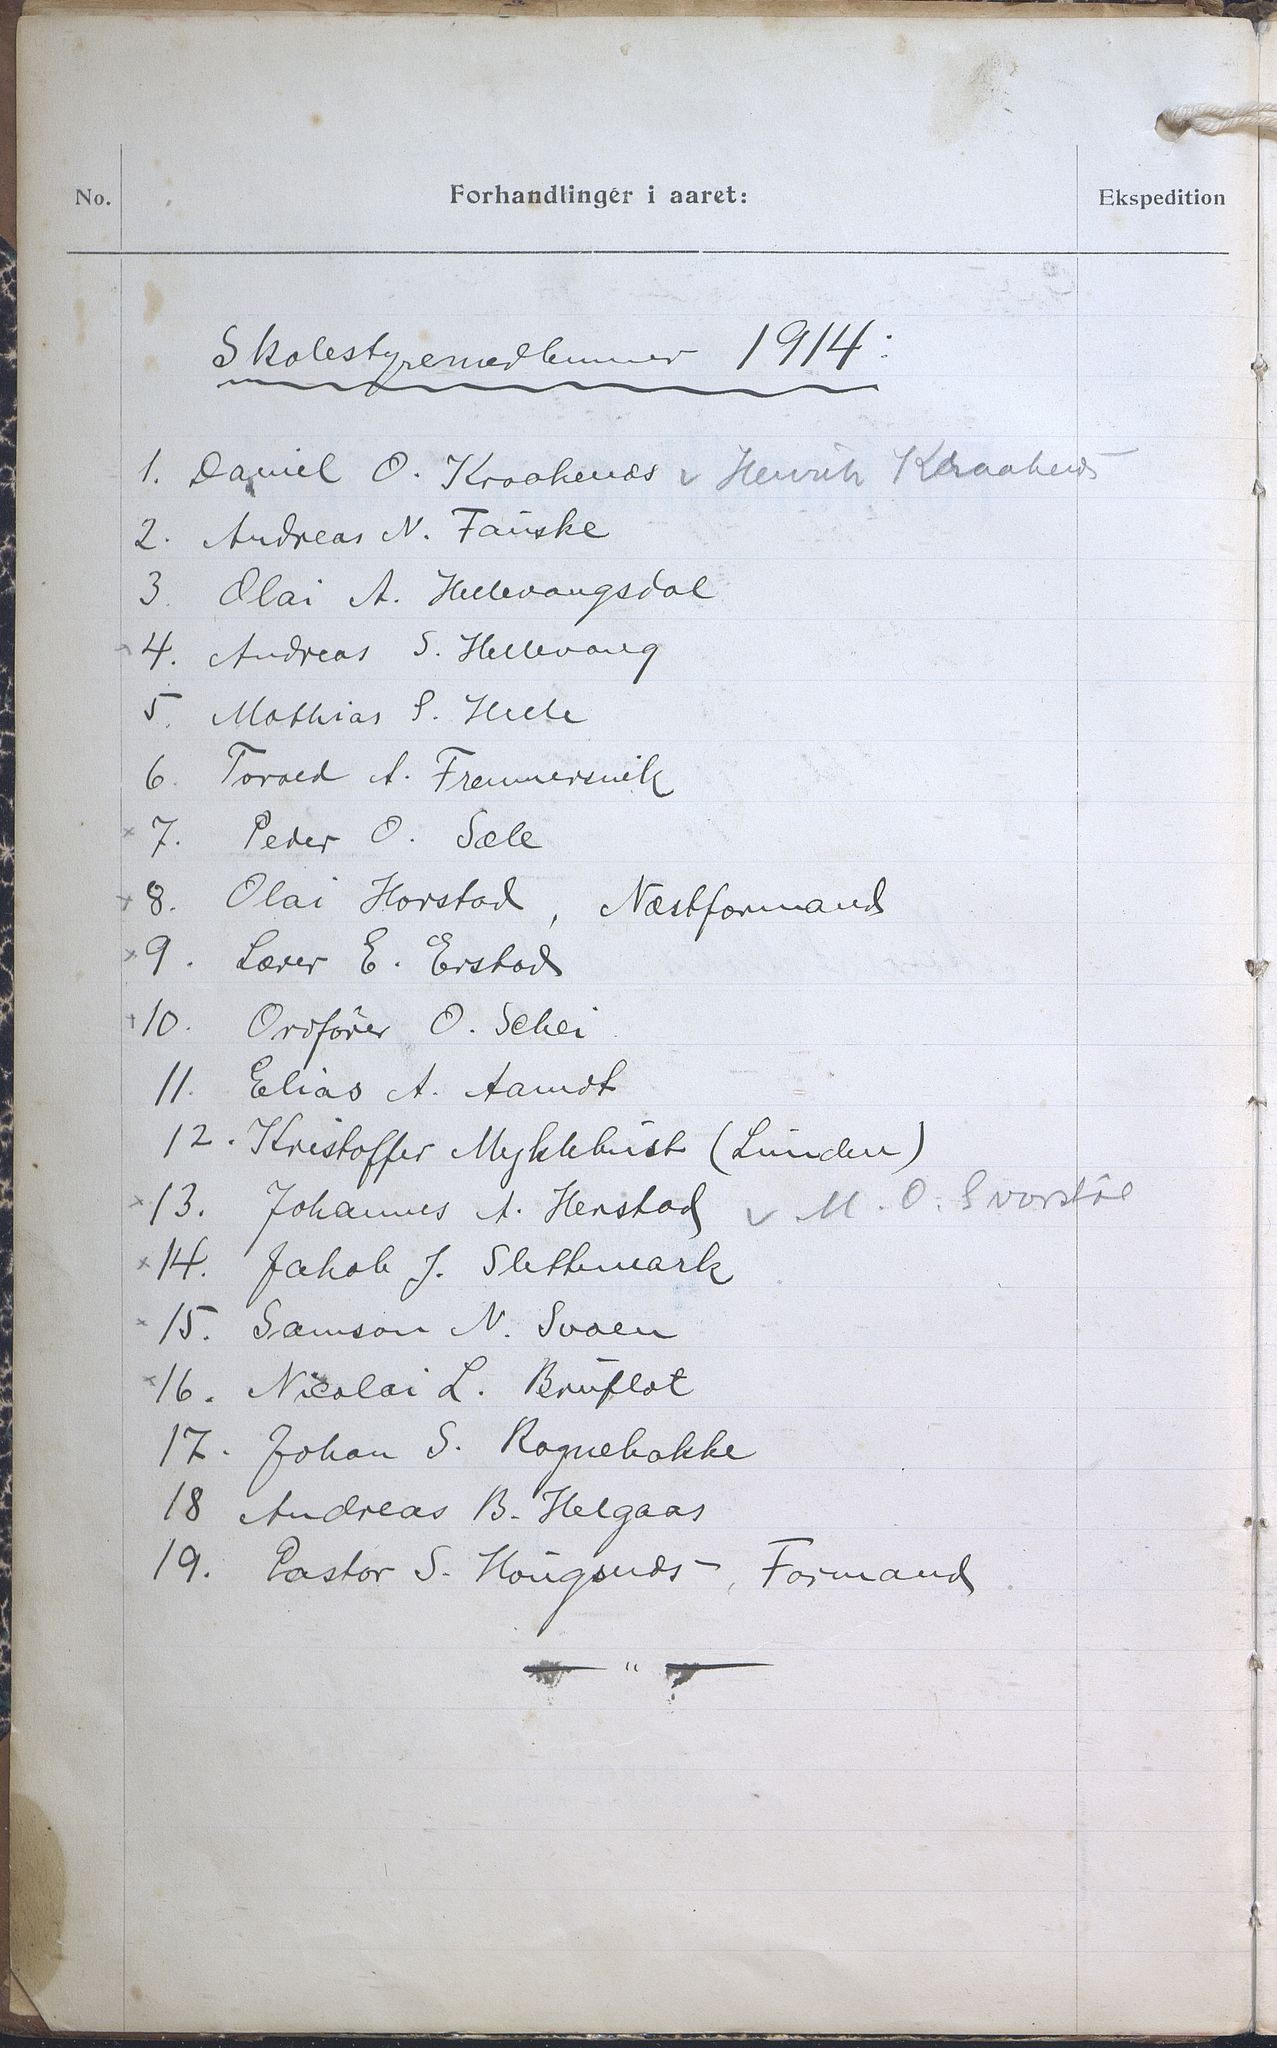 No.
Forhandlinger i aaret:
Ekspedition
Skolestyremedlemmer 1914:
1. Daniel O. Kraakenæs v Henrik Kraakenæs
2. Andreas N. Fauske
3. Olai A. Hellevangsdal
4. Andreas S. Hellevang
5. Mathias S. Helle
6. Torvald A. Fremmersvik
x 7. Peder O. Sæle
x 8. Olai Horstad, Næstformand
x 9. Lærer E. Erstad
x 10. Ordfører O. Schei
11. Elias A. Aamot
12. Kristoffer Myklebust (Lunden)
x 13. Johannes A. Herstad v M. O. Svorstøl
x 14. Jakob J. Slettemark
x 15. Samson N. Svoen
x 16. Nicolai L. Bruflot
17. Johan S. Rognebakke
18 Andreas B. Helgaas
19. Pastor S. Hougsnæs, Formand
— " —